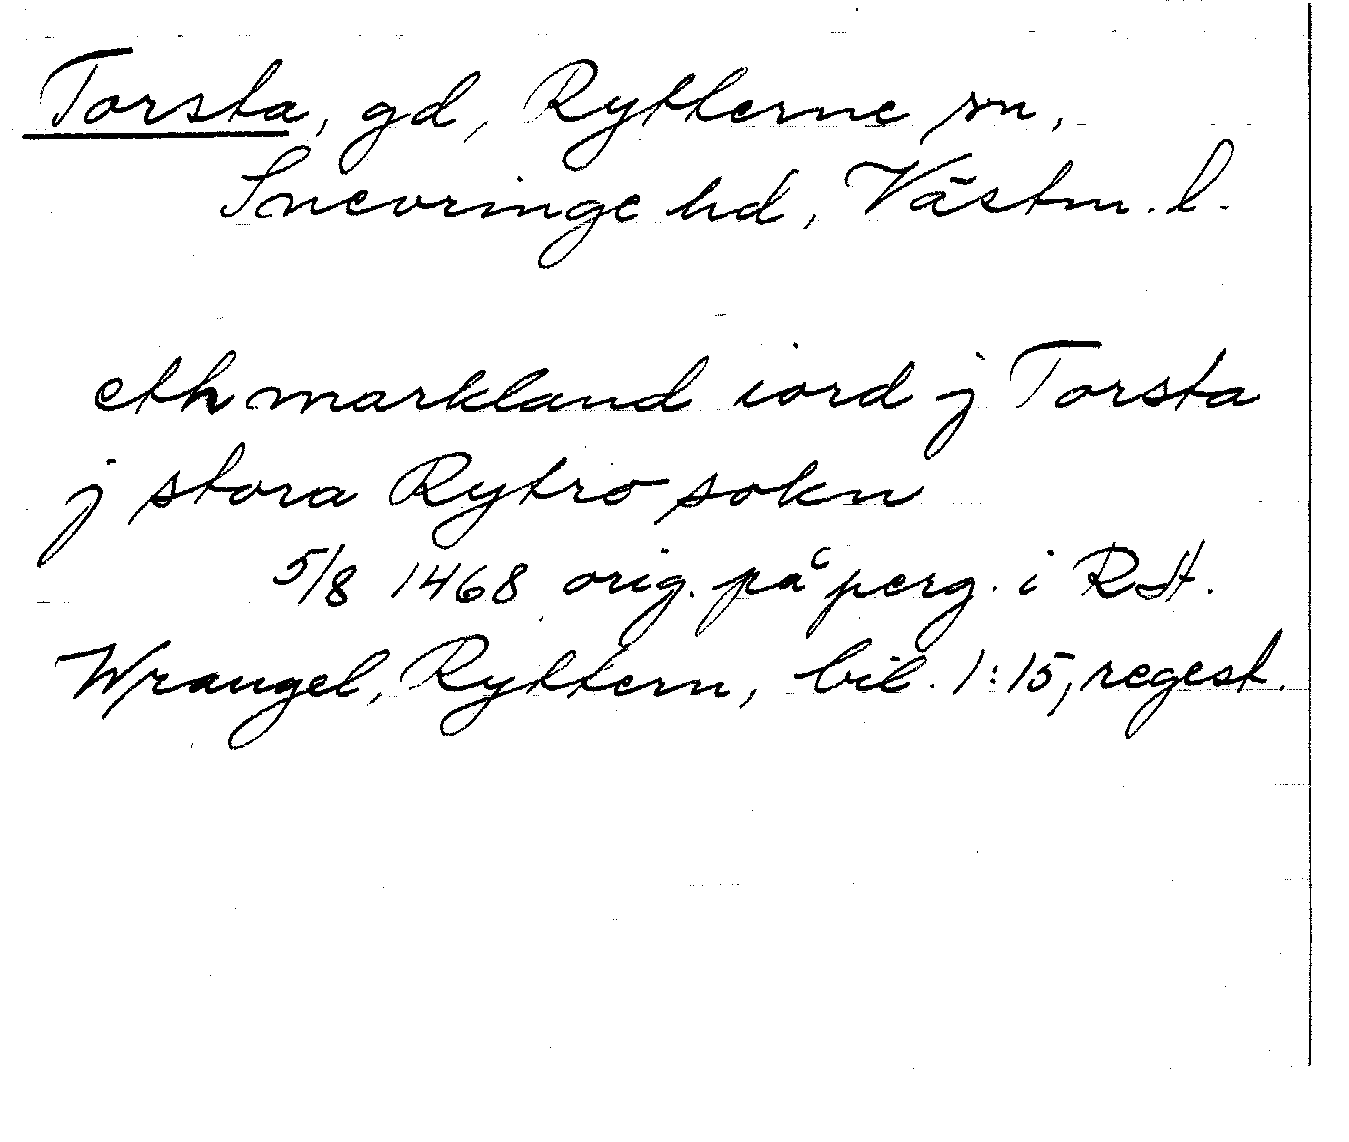 Torsta, gd, Rytterne sn,
Snevringe hd, Västm. l.
eth markland iord j Torsta
j stora Rytro sokn
5/8 1468 orig. på perg. i RA.
Wrangel, Ryttern, bil. 1:15, regest.